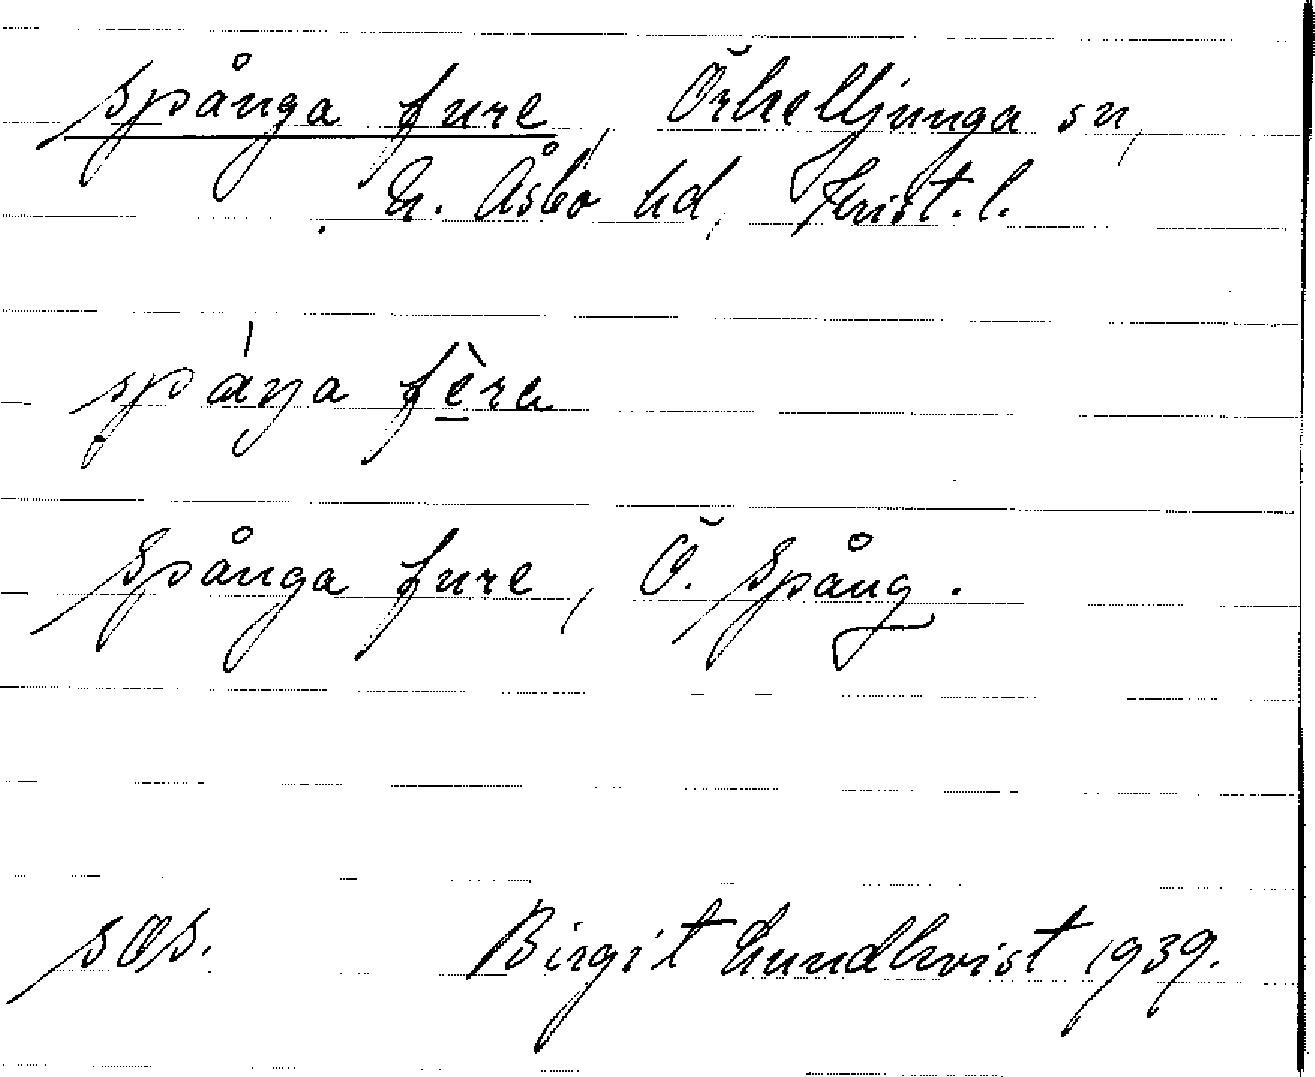 Spånga fure, Örkelljunga sn,
N. Åsbo hd, Krist. l.
spáŋa fère
Spånga fure, Ö. Spång.
sås. Birgit Lundkvist 1939.